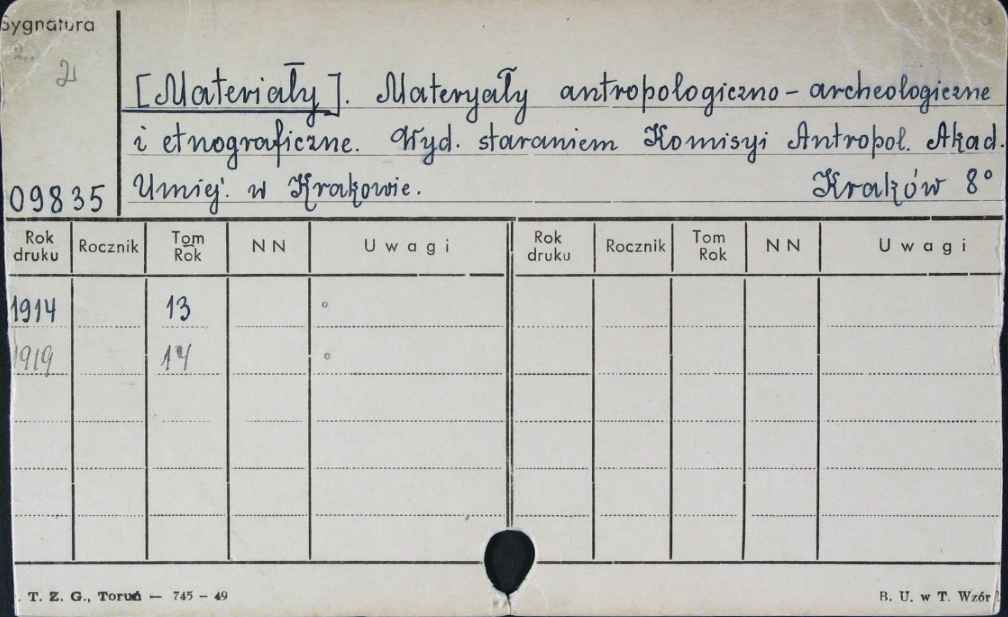 Sygnatura
[Materiały]. Materyały antropologiczno-archeologiczne
i etnograficzne. Wyd. staraniem Komisyi Antropol. Akad.
09835 Umiej. w Krakowie. Kraków 8°
Rok druku Rocznik Tom Rok NN Uwagi Rok druku Rocznik Tom Rok NN Uwagi
1914 13 °
1919 14 °
. T. Z. G., Toruń — 745 - 49 B. U. w T. Wzór